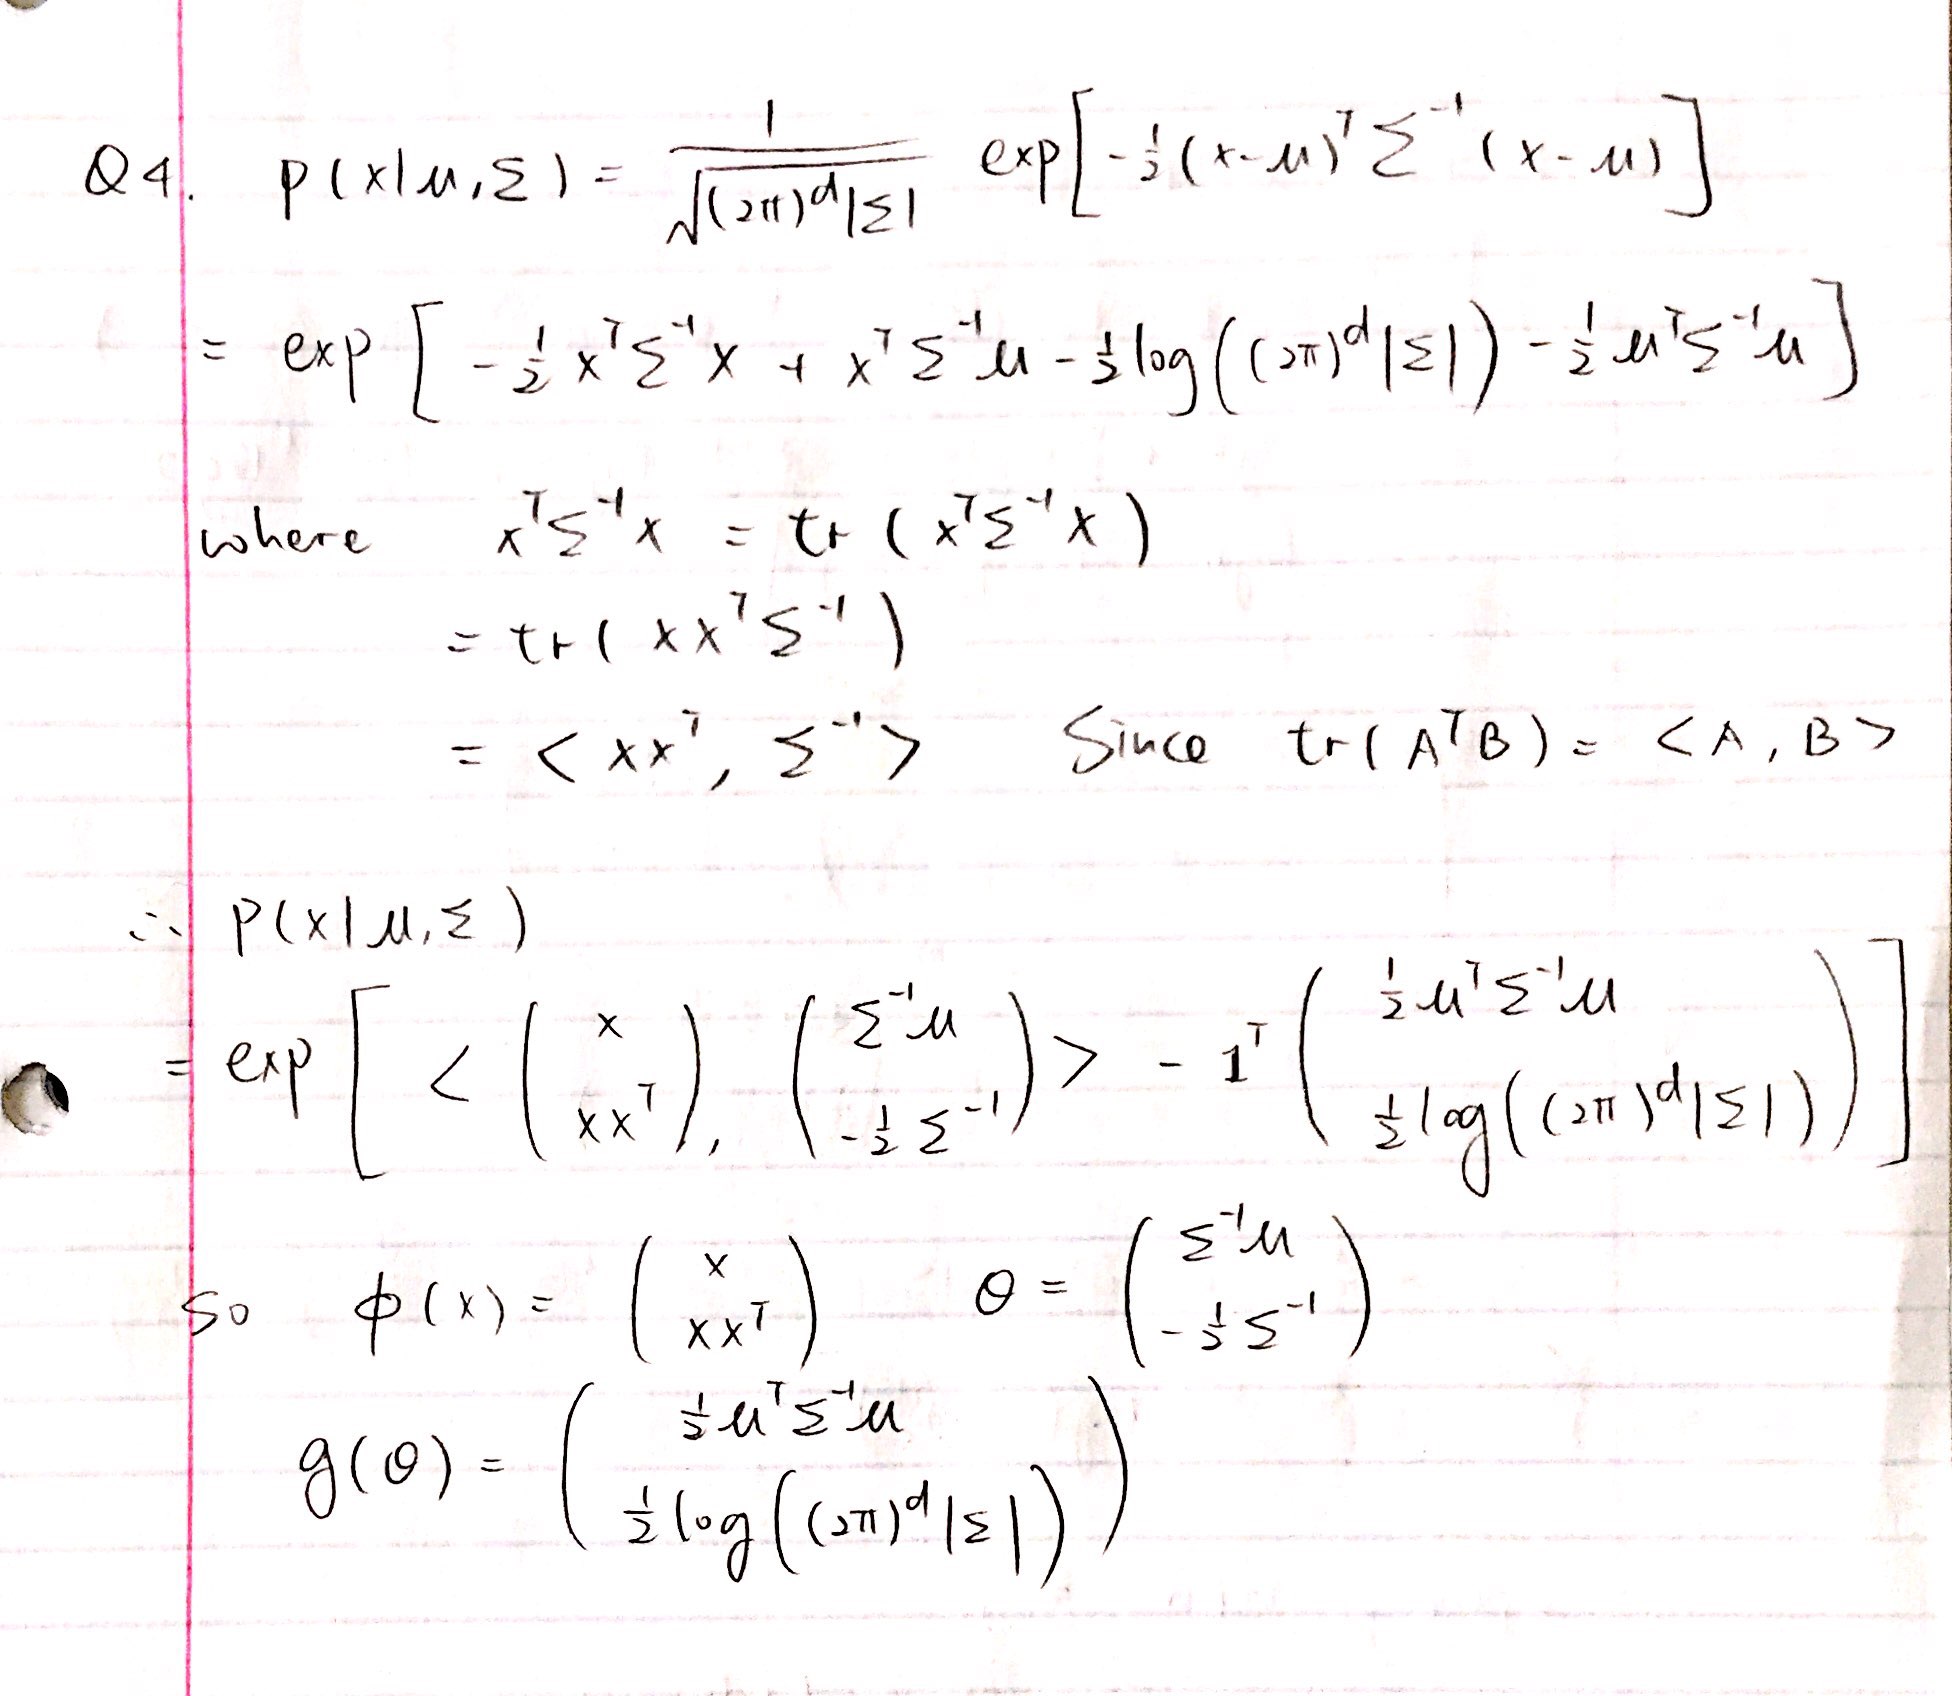 Q4. p(x|μ,Σ) = 1/√((2π)^d|Σ|) exp[-½(x-μ)^T Σ^-1 (x-μ)]
= exp[-½ x^T Σ^-1 x + x^T Σ^-1 μ - ½ log((2π)^d|Σ|) - ½ μ^T Σ^-1 μ]
where x^T Σ^-1 x = tr(x^T Σ^-1 x)
= tr(xx^T Σ^-1)
= <xx^T, Σ^-1> Since tr(A^T B) = <A, B>
∴ P(x|μ,Σ)
= exp[<(x; xx^T), (Σ^-1 μ; -½ Σ^-1)> - 1^T (½ μ^T Σ^-1 μ; ½ log((2π)^d|Σ|))]
so φ(x) = (x; xx^T) θ = (Σ^-1 μ; -½ Σ^-1)
g(θ) = (½ μ^T Σ^-1 μ; ½ log((2π)^d|Σ|))